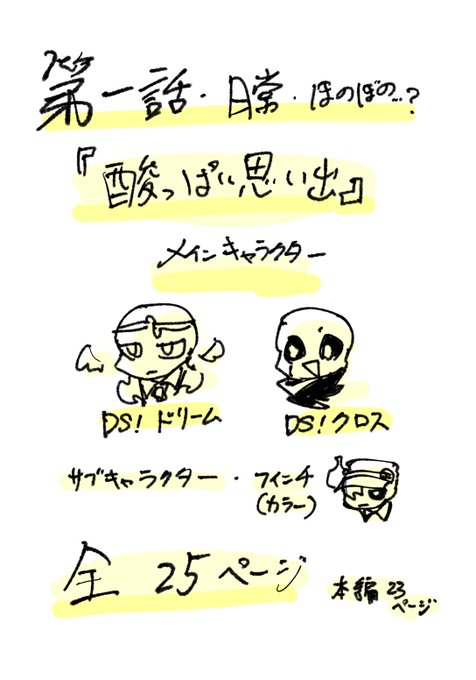 第一話・日常・ほのぼの…?
『酸っぱい思い出』
メインキャラクター
DS!ドリーム
DS!クロス
サブキャラクター・フインチ
(カラー)
全25ページ
本編23
ページ